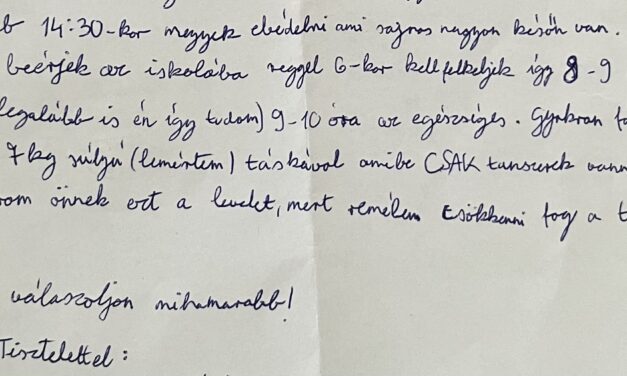 14:30-kor megyek ebédelni ami sajnos nagyon későn van.
beérjek az iskolába reggel 6-kor kell felkeljek így 8-9
legalább is én így tudom) 9-10 óra az egészséges. Gyakran
7kg súlyú (lemértem) táskával amibe CSAK tanszerek
önnek ezt a levelet, mert remélem csökkenni fog a
válaszoljon mihamarabb!
Tisztelettel: